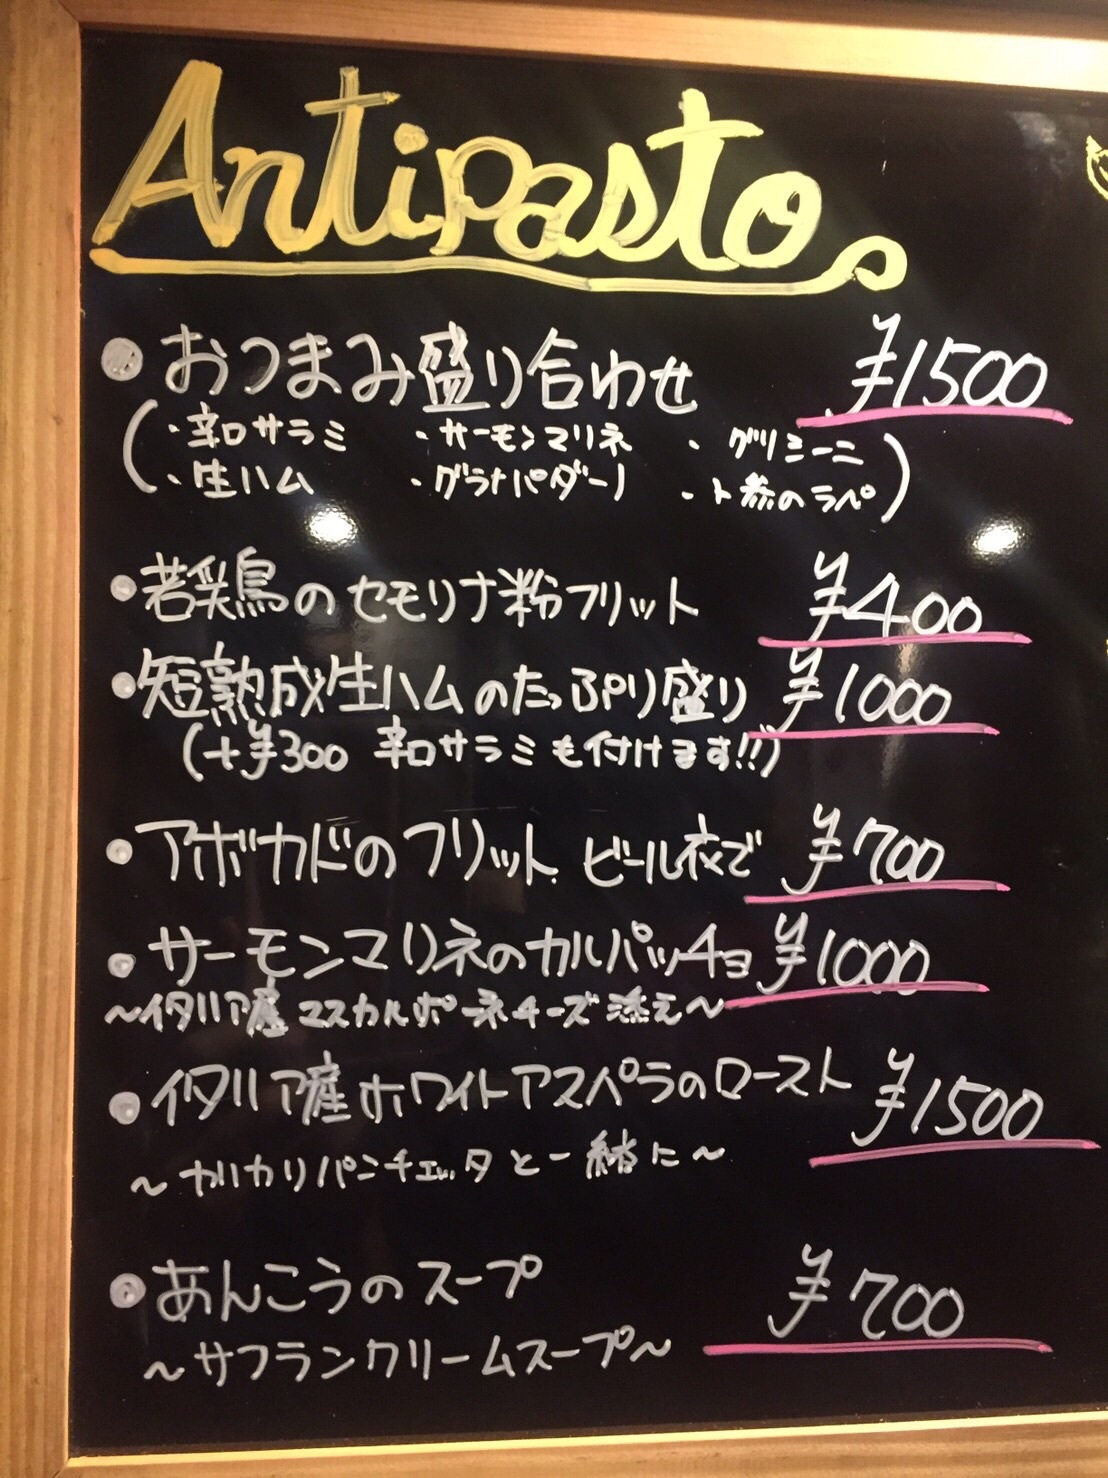 Antipasto
• おつまみ盛り合わせ ¥1500
(・辛口サラミ ・サーモンマリネ ・グリシーニ
・生ハム ・グラナパダーノ ・人参のラペ)
• 若美鳥のセモリナ粉フリット ¥400
• 短熟成生ハムのたっぷり盛り ¥1000
(+¥300 辛口サラミも付けます!!)
• アボカドのフリット ビール衣で ¥700
• サーモンマリネのカルパッチョ ¥1000
~イタリア産マスカルポーネチーズ添え~
• イタリア産ホワイトアスペラのロースト ¥1500
~カリカリパンチェッタと一緒に~
• あんこうのスープ ¥700
~サフランクリームスープ~